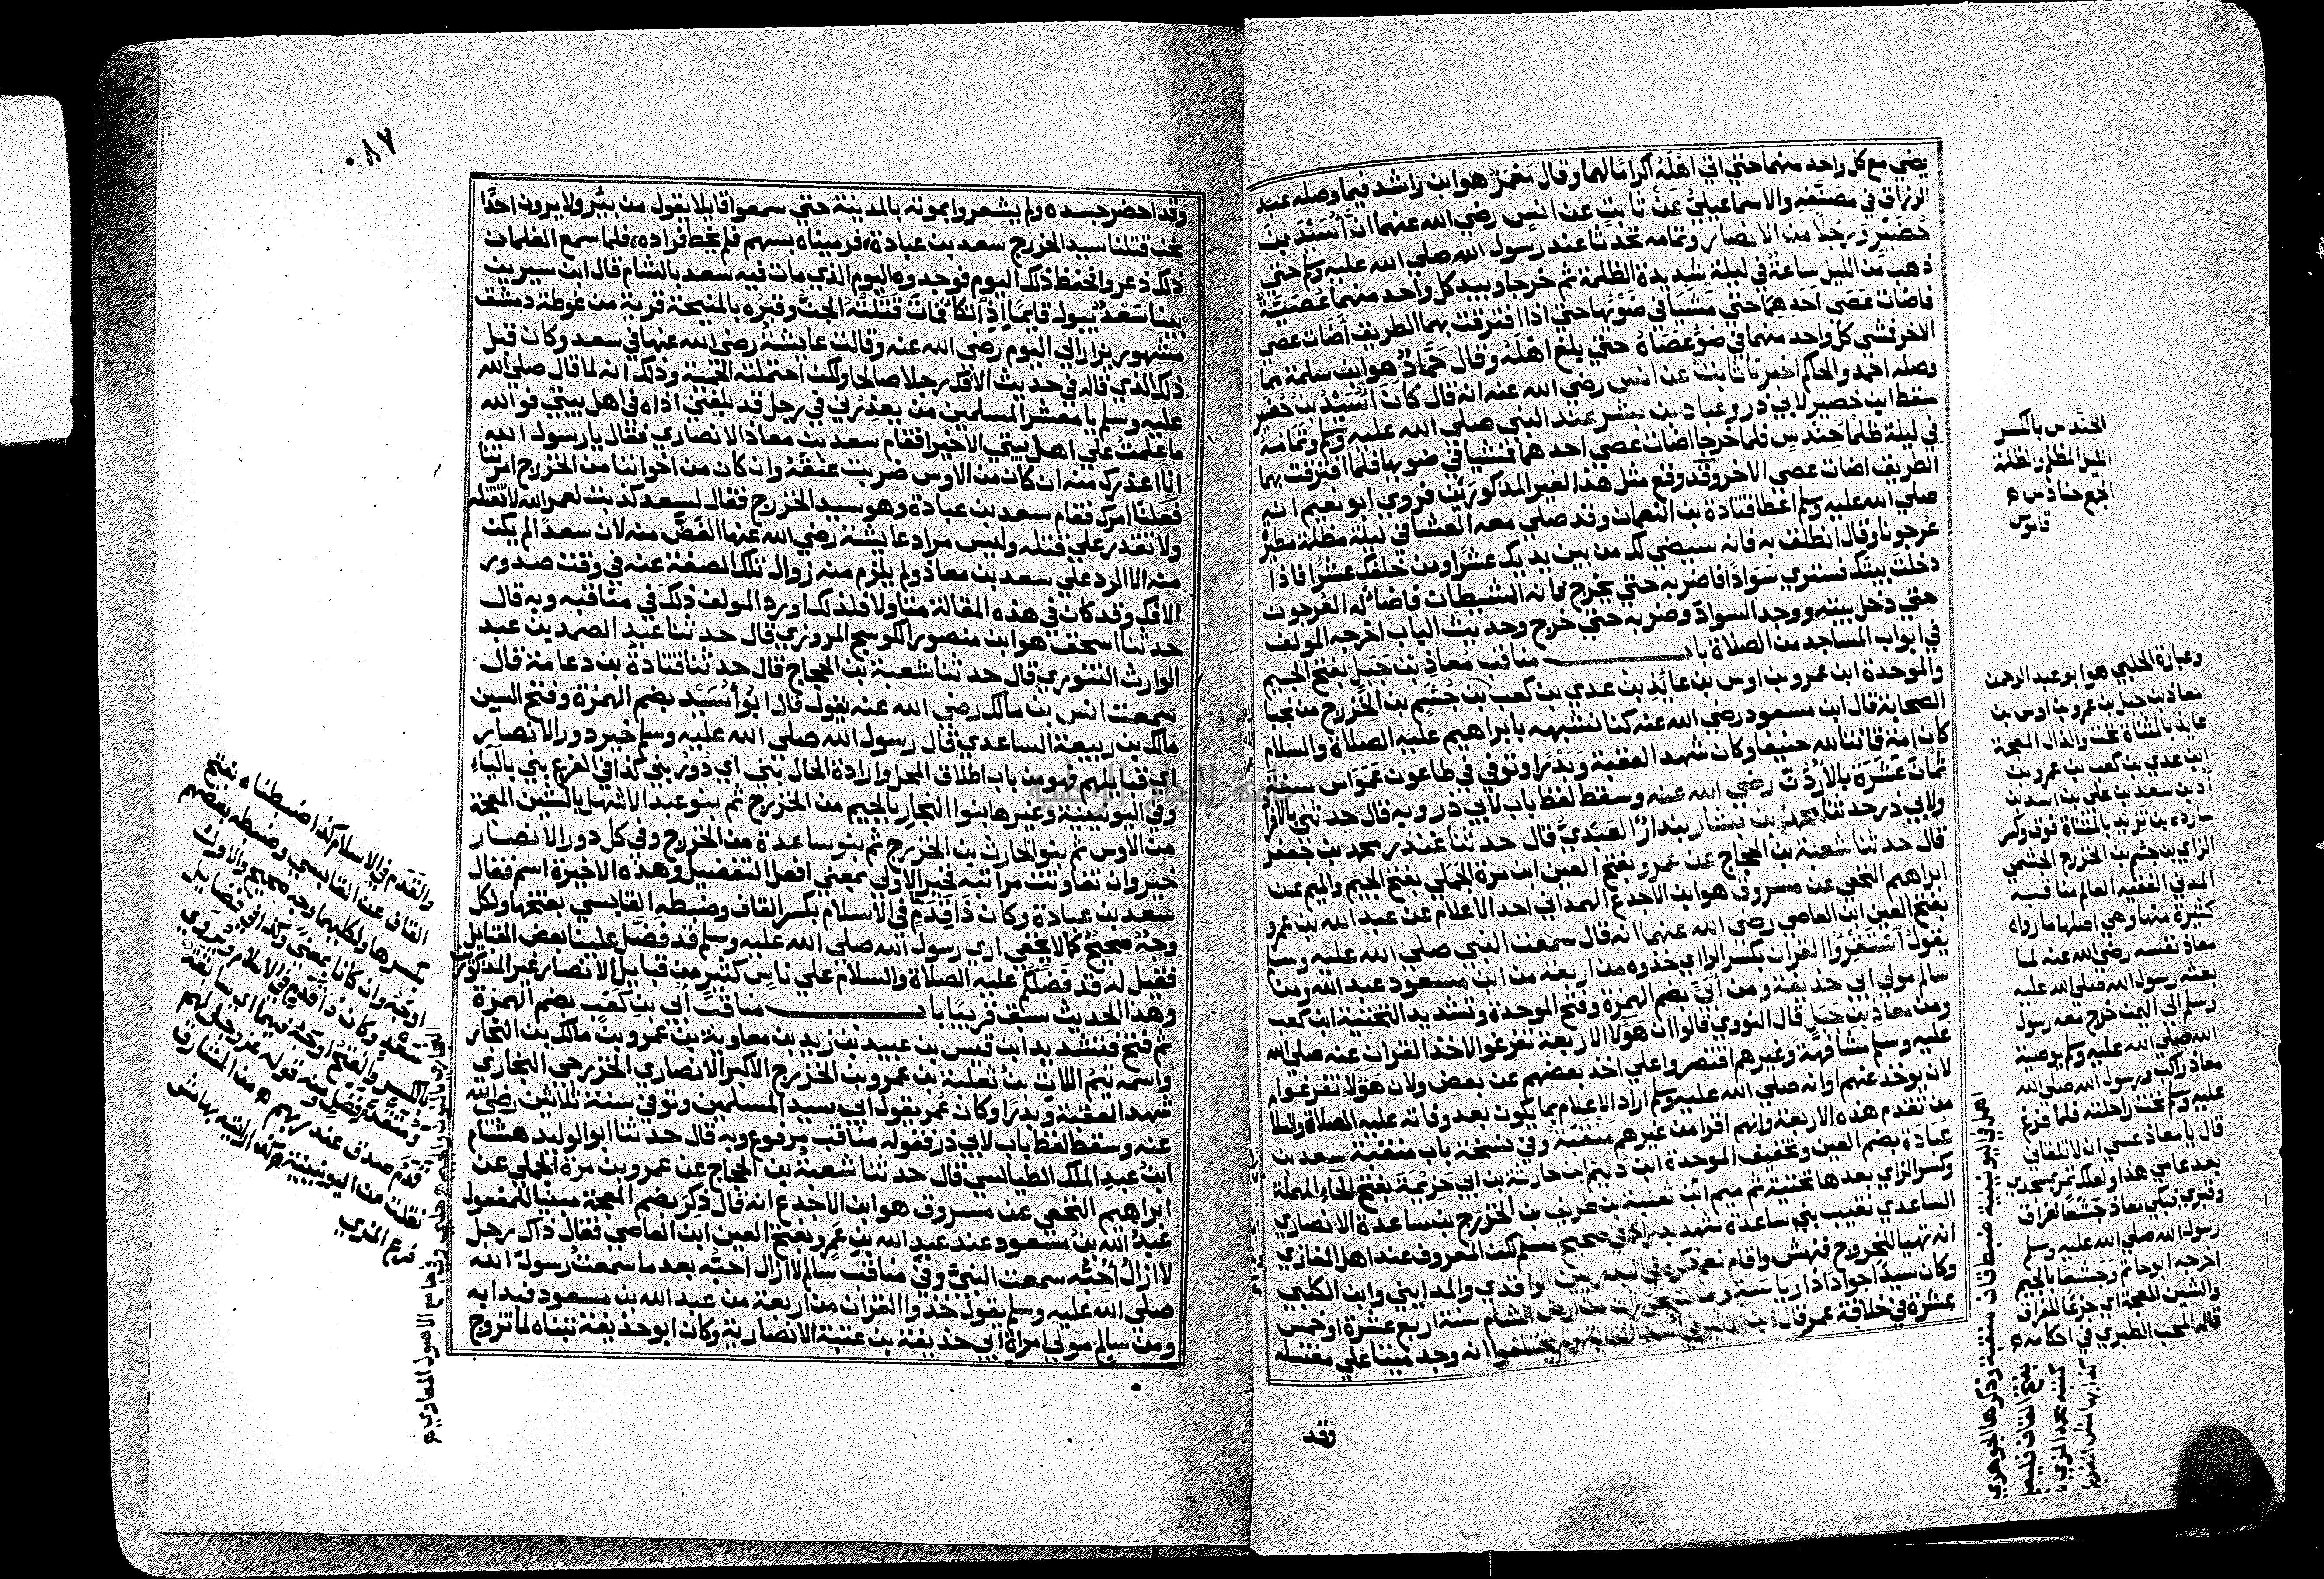 يضي مع كل واحد منهما حتي اتي اهله اكرامًا لهما وقال مَعْمَرٌ هو ابن راشد فيما وصله عبد
الرزاق في مصَنَّفِه والاسماعيليُّ عَنْ ثابتٍ عن انسٍ رضي الله عنهما انَّ اُسَيْدَ بنَ
حُضَيْرٍ وَرَجُلًا من الانصار وتمامه تحدثا عند رسول الله صلي الله عليه وسلم حتي
ذهب من الليل ساعةٌ في ليلة شديدة الظلمة ثم خرجا وبيد كل واحد منهما عُصَيَّةٌ
فاضات عَصَي اَحَدِهِمَا حتي مَشَيَا في ضَوْئها حتي اذا افترقت بهما الطريق أضات عصي
الاخر فمشي كل واحد منهما في ضَوْءِ عَصَاهُ حتي بلغ اهْلَهُ وقال حَمَّادٌ هو ابن سلمة مما
وصله احمد والحاكم اخبرنا ثابتٌ عن انسٍ رضي الله عنه انه قال كَانَ اُسَيْدُ بنُ حُضَيرٍ
سقط ابن حضير لابي ذر وعباد بن بشر عند النبي صلي الله عليه وسلم وتمامه
في ليلة ظلمآ حِنْدِسٍ فلما خرجا اضات عصي احدهما فمشيا في ضوئها فلما افترقت بهما
الطريق اضات عصي الاخر وقد وقع مثل هذا لغير المذكورَيْن فروي ابو نعيم انه
صلي الله عليه وسلم اعطا قتادة بن النعمان وقد صلي معه العشا في ليلة مظلمة مطيرة
عرجونا وقال انطلق به فانه سيضي لك من بين يديك عشرًا ومن خلفك عشرًا فاذا
دخلت بيتك فستري سَوَادًا فاضربه حتي يخرج فانه الشيطان فاضاله العرجون
حتي دخل بيته ووجد السواد وضربه حتي خرج وحديث الباب اخرجه المولف
في ابواب المساجد من الصلاة باب مناقب مُعَاذِ بن جَبَلٍ بفتح الجيم
والموحدة ابن عمرو بن اوس بن عايذ بن عدي بن كعب بن جُشَمِ بن الخزرج من نجبا
الصحابة قال ابن مسعود رضي الله عنه كنا نشبهه بابراهيم عليه الصلاة والسلام
كان امة قانتا لله حنيفا وكان شهد العقبة وبَدْرًا وتوفي في طاعون عَمَوَاس سنة
ثمان عَشَرَة بالاُرْدُنِّ رضي الله عنه وسقط لفظ باب لابي ذر وبه قال حدثني بالافراد
ولابي ذر حدثنا محمد بن بشار بندارٌ العَبْدِيُّ قال حدثنا غندر محمد بن جعفر
قال حدثنا شعبة بن الحجاج عن عمرو بفتح العين ابن مرة الجَمَلِي بفتح الجيم والميم عن
ابراهيم النخعي عن مسروق هو ابن الاجدع الهمداني احد الاعلام عن عبد الله بن عمرو
بفتح العين ابن العاصي رضي الله عنهما انه قال سَمعت النبي صلي الله عليه وسلم
يقولُ اسْتَقْرِؤُا القرآن بكسر الراي خذوه من اربعة من ابن مسعود عبد الله ومن
سالم مولي ابي حذيفة ومن أُبَيٍّ بضم الهمزة وفتح الموحدة وتشديد التحتية ابن كعب
ومن معاذ بن جَبَلٍ قال النووي قالوا ان هؤلاء الاربعة تفرغوا لاخذ القران عنه صلي الله
عليه وسلم مشافهةً وغيرهم اقتصروا علي اخذ بعضهم عن بعض ولان هؤلاء تفرغوا
لان يوخذ عنهم او انه صلي الله عليه وسلم اراد الاعلام بما يكون بعد وفاته عليه الصلاة والسلام
من تقدم هذه الاربعة وانهم اقرا من غيرهم مَنْقَبَةُ وفي نسخة باب منقبة سعد بن
عُبَادة بضم العين وتخفيف الموحدة ابن دليم بن حارثة بن ابي حَزِيْمَةَ بفتح الحاء المهملة
وكسر الزاي بعدها تحتية ثم ميم ابن ثعلبة بن طريف بن الخزرج بن ساعدة الانصاري
الساعدي نقيب بني ساعدة شهد بدرا كما في صحيح مسلم لكن المعروف عند اهل المغازي
انه تهيا للخروج فنهش واقام نعم ذكره في البدريين الواقدي والمدايني وابن الكلبي
وكان سيدًا جوادًا ذا رياسة ومات بحوران من ارض الشام سنة اربع عشرة او خمس
عشرة في خلافة عمر قال ابن الاثير انه وجد ميتا علي مغتسله
وقد
الحِنْدِس بالكسر
الليل المظلم والظلمة
الجمع حنادس ه
قاموس
وعبارة الحلبي هو ابو عبد الرحمن
معاذ بن جبل بن عمرو بن اوس بن
عايذ بالمثناة تحت والذال المعجمة
ابن عدي بن كعب بن عمرو بن
أدّ بن سعد بن علي بن اسد بن
ساردة بن تَزِيْد بالمثناة فوق وكسر
الزاي بن جشم بن الخزرج الجشمي
المدني الفقيه العالم مناقبه
كثيرة منها وهي اصلها ما رواه
معاذ نفسه رضي الله عنه لما
بعثه رسول الله صلي الله عليه
وسلم الي اليمن خرج معه رسول
الله صلي الله عليه وسلم يوصيه
معاذ راكب ورسول الله صلي الله
عليه وسلم تحت راحلته فلما فرغ
قال يا معاذ عسي ان لا تلقاني
بعد عامي هذا ولعلك تمر بمسجدي
وقبري فبكي معاذ جَشَعًا لفراق
رسول الله صلي الله عليه وسلم
اخرجه ابو حاتم وَجَشَعًا بالجيم
والشين المعجمة اي جزعًا للفراق
قاله المحب الطبري في احكامه ه
وقد احضر جسده ولم يشعروا بموته بالمدينة حتي سمعوا قايلا يقول من بئر ولا يرون احدًا
نحن قتلنا سيد الخزرج سعد بن عبادة، فرميناه بسهم فلم يخط فواده، فلما سمع الغلمان
ذلك ذعروا فحفظ ذلك اليوم فوجدوه اليوم الذي مات فيه سعد بالشام قال ابن سيرين
بينا سَعْدٌ يبول قايمًا اِذِ اتّكأ فَمَاتَ قَتَلَتْهُ الجنُّ وقبره بالمنيحة قرية من غوطة دمشق
مشهور يزار الي اليوم رضي الله عنه وقالت عايشةُ رضي الله عنها في سعد وكان قبل
ذلك الذي قاله في حديث الافك رجلا صالحا ولكن احتملته الحمية وذلك انه لما قال صلي الله
عليه وسلم يا معشر المسلمين من يعذرني في رجل قد بلغني اذاه في اهل بيتي فو الله
ما علمت علي اهل بيتي الا خيرا فقام سعد بن معاذ الانصاري فقال يا رسول الله
انا اعذرك منه ان كان من الاوس ضربت عنقَهُ وان كان من اخواننا من الخزرج امرتنا
فعلنا امرك فقام سعد بن عبادة وهو سيد الخزرج فقال لسعد كذبت لعمر الله لا تقتله
ولا تقدر علي قتله وليس مراد عايشة رضي الله عنها الغَضُّ منه لان سعدًا لم يكن
منه الا الرد علي سعد بن معاذ ولم يلزم منه زوال تلك الصفة عنه في وقت صدور
الافك وقد كان في هذه المقالة متاولا فلذلك اورد المولف ذلك في مناقبه وبه قال
حدثنا اسحق هو ابن منصور الكوسج المروزي قال حدثنا عبد الصمد بن عبد
الوارث التنوري قال حدثنا شعبة بن الحجاج قال حدثنا قتادة بن دعامة قال
سمعت انس بن مالك رضي الله عنه يقول قال ابُو أُسَيْدٍ بضم الهمزة وفتح السين
مالك بن ربيعة الساعدي قال رسول الله صلي الله عليه وسلم خير دور الانصار
اي قبايلهم فهو من باب اطلاق المحل وارادة الحال بني اي دُوْر بني كذا في الفرع بني بالياء
وفي اليونينية وغيرها بنوا النجارِ بالجيم من الخزرج ثم بنو عبد الاشهل بالشين المعجمة
من الاوس ثم بنو الحارث بن الخزرج ثم بنو ساعدة من الخزرج وفي كل دور الانصار
خيرٌ وان تفاوتت مراتبه فخير الاولي بمعني افعل التفضيل وهذه الاخيرة اسم فقال
سعد بن عبادة وكان ذَا قِدَمٍ في الاسلام بكسر القاف وضبطه القابسي بفتحها ولكل
وجهٌ صحيحٌ كما لا يخفي اري رسول الله صلي الله عليه وسلم قد فضّل علينا بعض القبايل
فقيل له قد فضّلكم عليه الصلاة والسلام علي ناس كثيرٍ من قبايل الانصار غير المذكورين
وهذا الحديث سبق قريبًا باب مناقب أُبَيِّ بن كعبٍ بضم الهمزة
ثم فتح فتشديد ابن قيس بن عبيد بن زيد بن معاوية بن عمرو بن مالك بن النجار
واسمه تيم اللات بن ثعلبة بن عمرو بن الخزرج الاكبر الانصاري الخزرجي النجاري
شهد العقبة وبدرًا وكان عُمر يقول ابي سيد المسلمين وتوفي سنة ثلاثين رضي الله
عنه وسقط لفظ باب لابي ذر فقوله مناقب مرفوع وبه قال حدثنا ابو الوليد هشام
ابنُ عبد الملك الطيالسي قال حدثنا شعبة بن الحجاج عن عمرو بن مرة الجملي عن
ابراهيم النخعي عن مسروق هو ابن الاجدع انه قال ذُكِرَ بضم المعجمة مبنيا للمفعول
عبدُ الله بن مسعود عند عبد الله بن عَمرٍو بفتح العين ابن العاصي فقال ذاك رجل
لا ازالُ أُحِبُّه سمعت النبيَّ وفي مناقب سالم لا ازال احبّه بعد ما سمعت رسول الله
صلي الله عليه وسلم يقول خذوا القران من اربعة من عبد الله بن مسعود فبدا به
ومن سالم مولي امراة ابي حذيفة بن عتبة الانصارية وكان ابو حذيفة تبناه لما تزوج
والقَدَم في الاسلام كذا ضبطناه بفتح
القاف عن القابسي وضبطه بعضهم
بكسرها ولكليهما وجه صحيح والاول
اوجَهُ وان كانا بمعني وكذا في فضايل
سَعْدٍ وكان ذا قدم في الاسلام ويُرْوَي
بالكسر والفتحُ اوجَهُ فيهما اي سابقة
ومنقَبَةٍ وفَضْلٍ ومنه قوله عز وجل لهم
قَدَمَ صدقٍ عند ربهم ه من المشارق
نقلت من اليونينية
فرع المزي